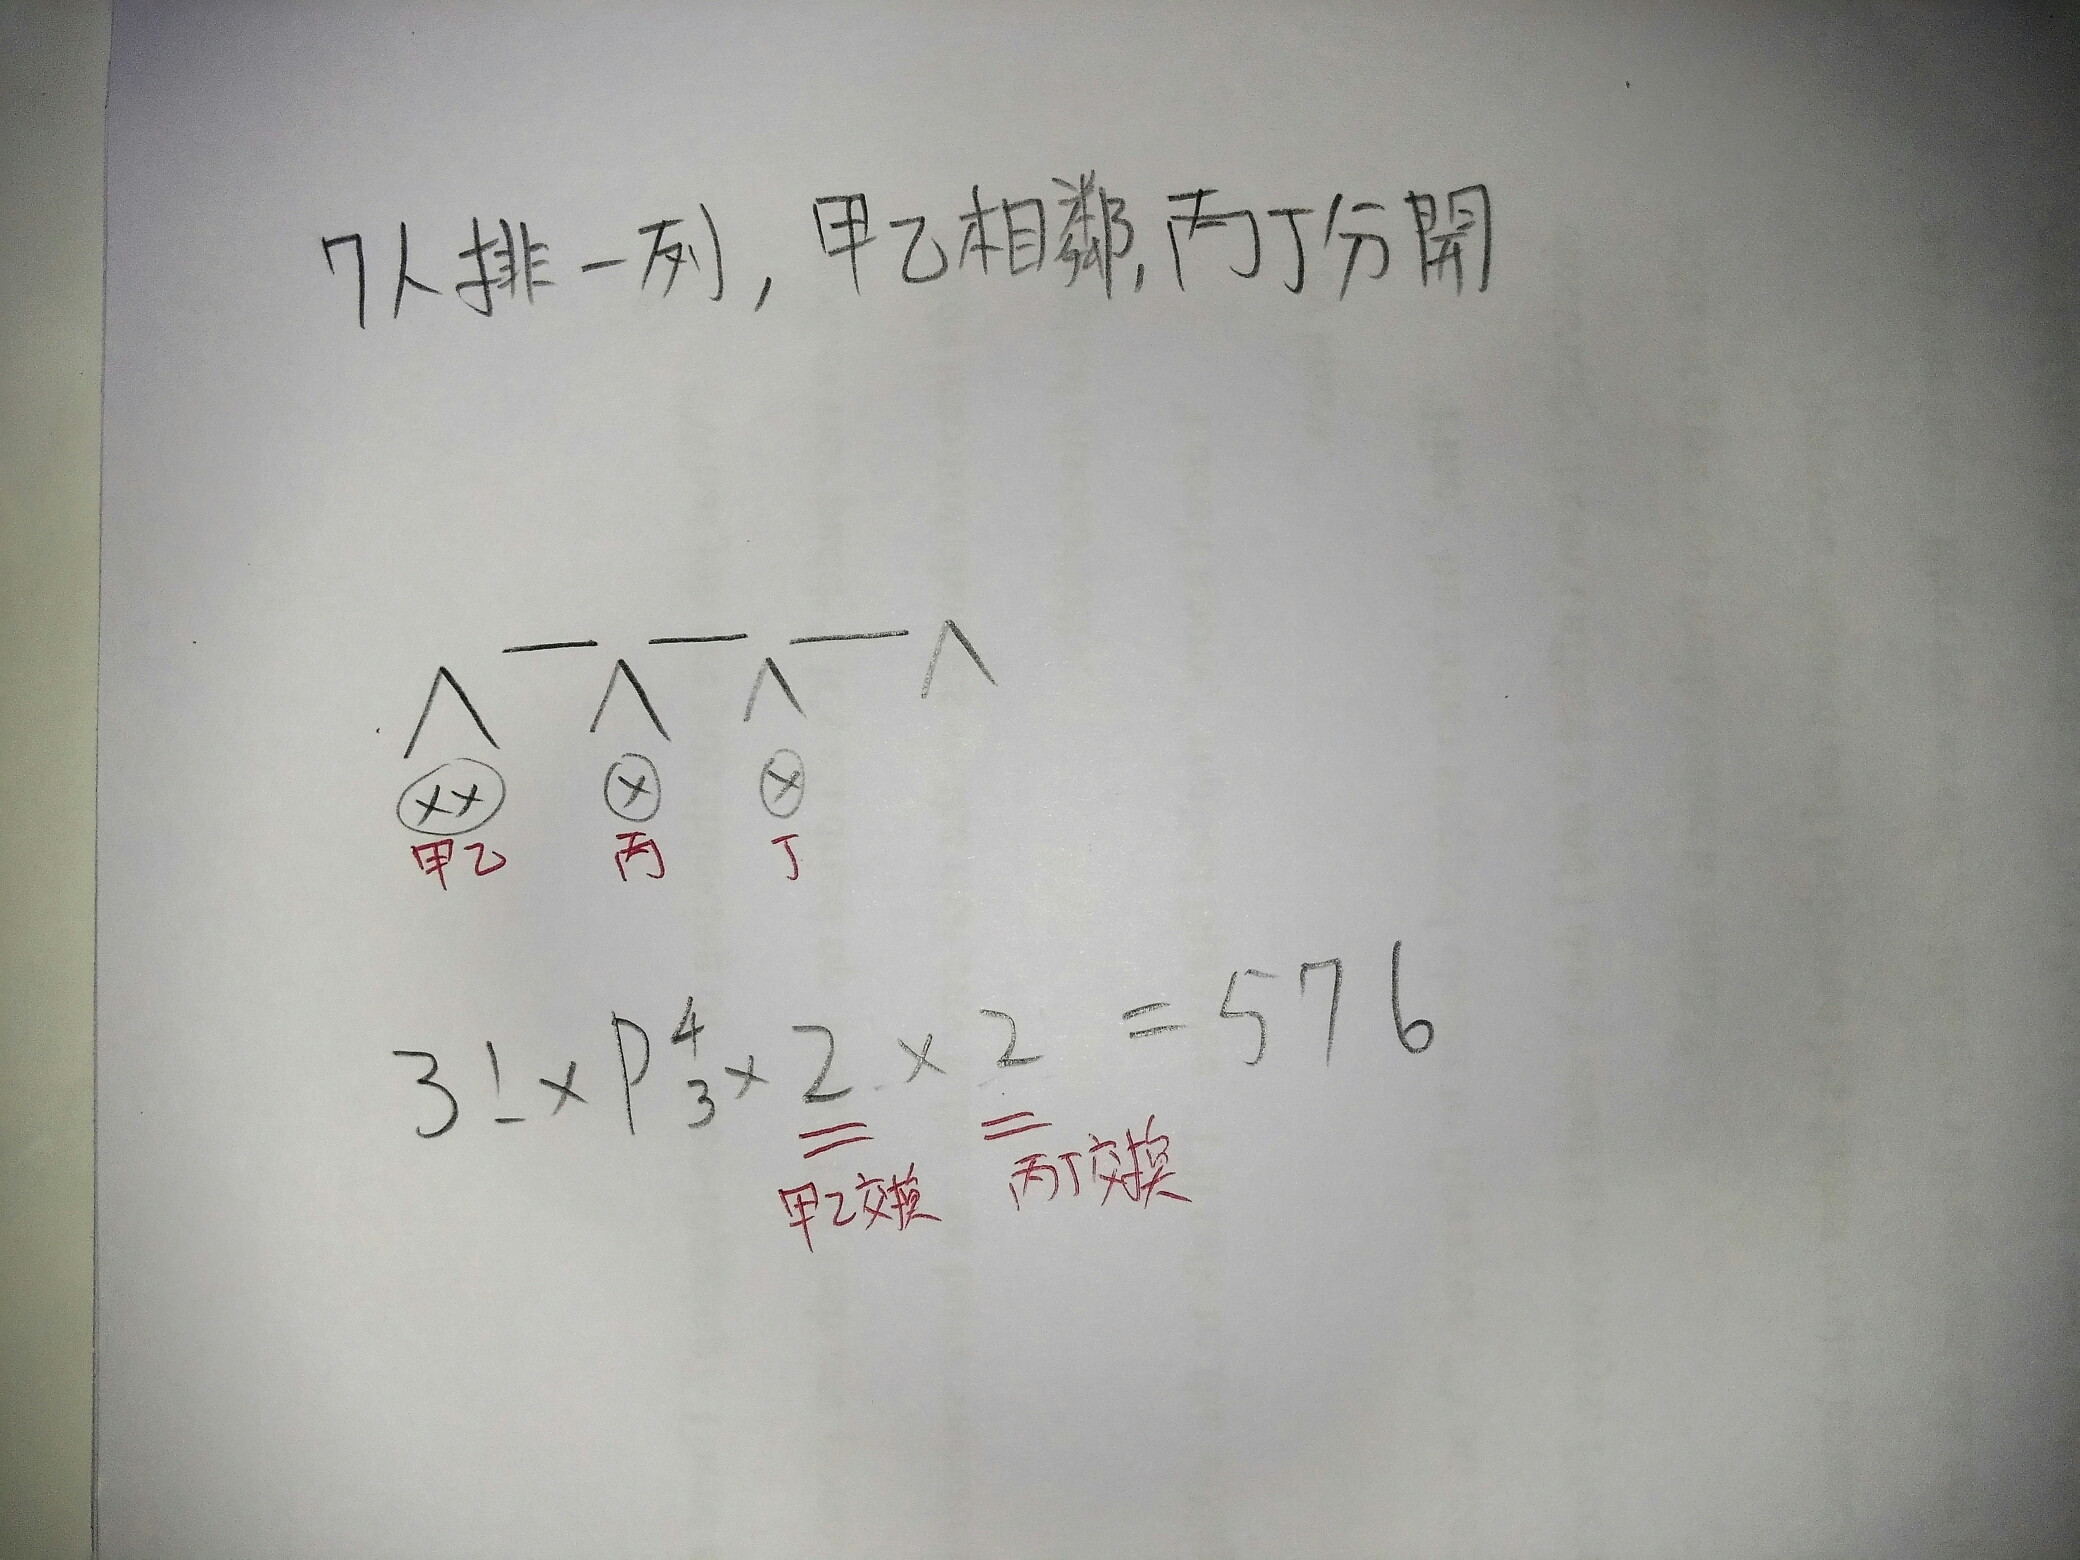 7人排一列,甲乙相鄰,丙丁分開
xx x x
甲乙 丙 丁
3!×P⁴₃×2×2=576
甲乙交換 丙丁交換